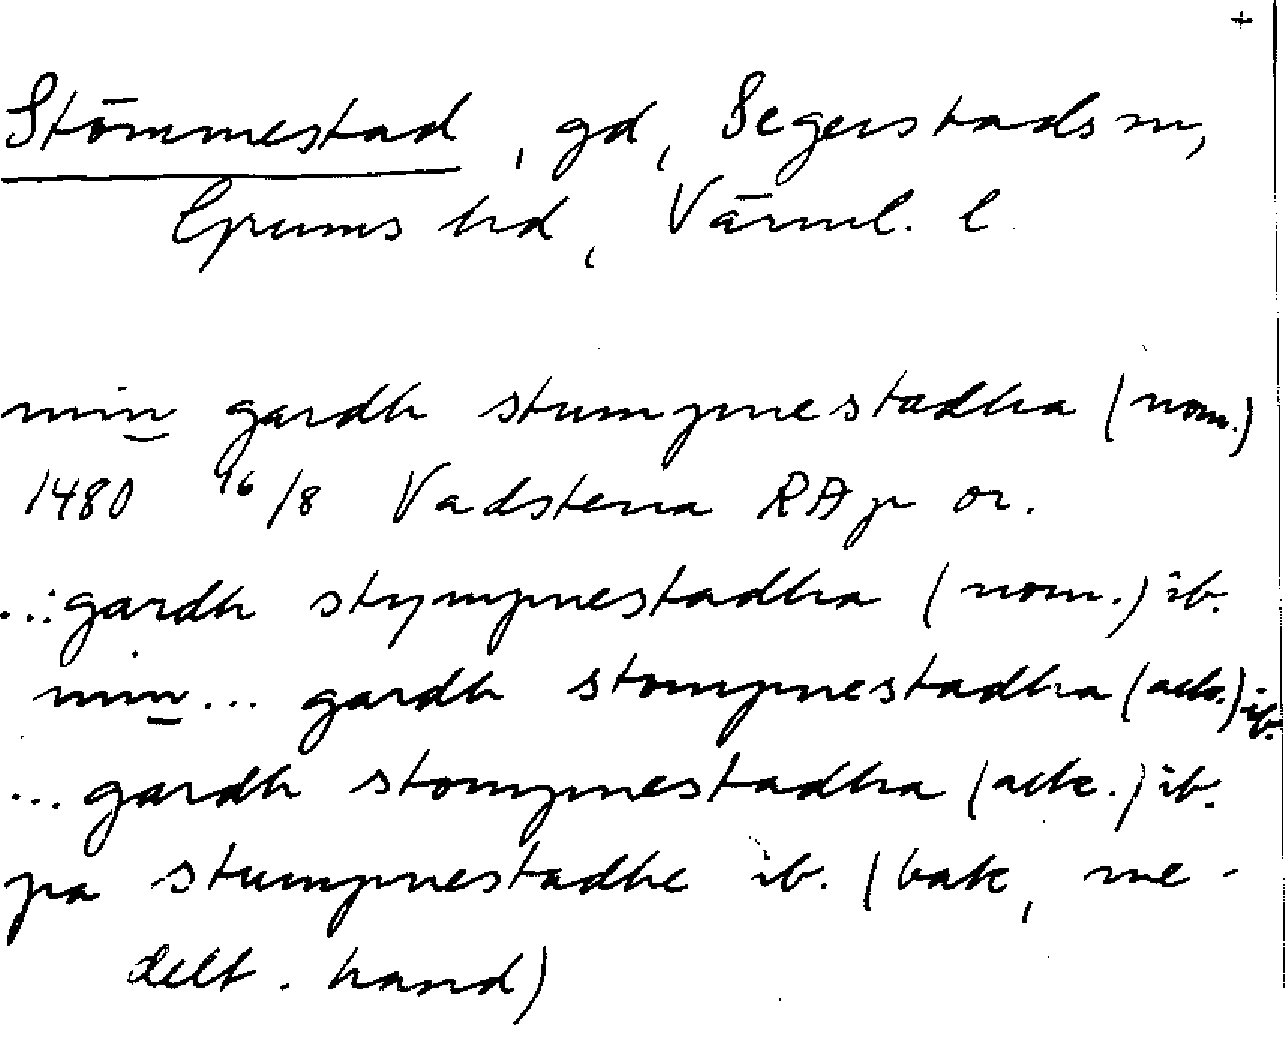 +
Stömmestad, gd, Segerstads sn,
Grums hd, Värml. l.
min gardh stumpnestadha (nom.)
1480 16/8 Vadstena RAp or.
... gardh stympnestadha (nom.) ib.
min ... gardh stompnestadha (ack.) ib.
... gardh stompnestadha (ack.) ib.
pa stumpnestadhe ib. (bak, me-
delt. hand)